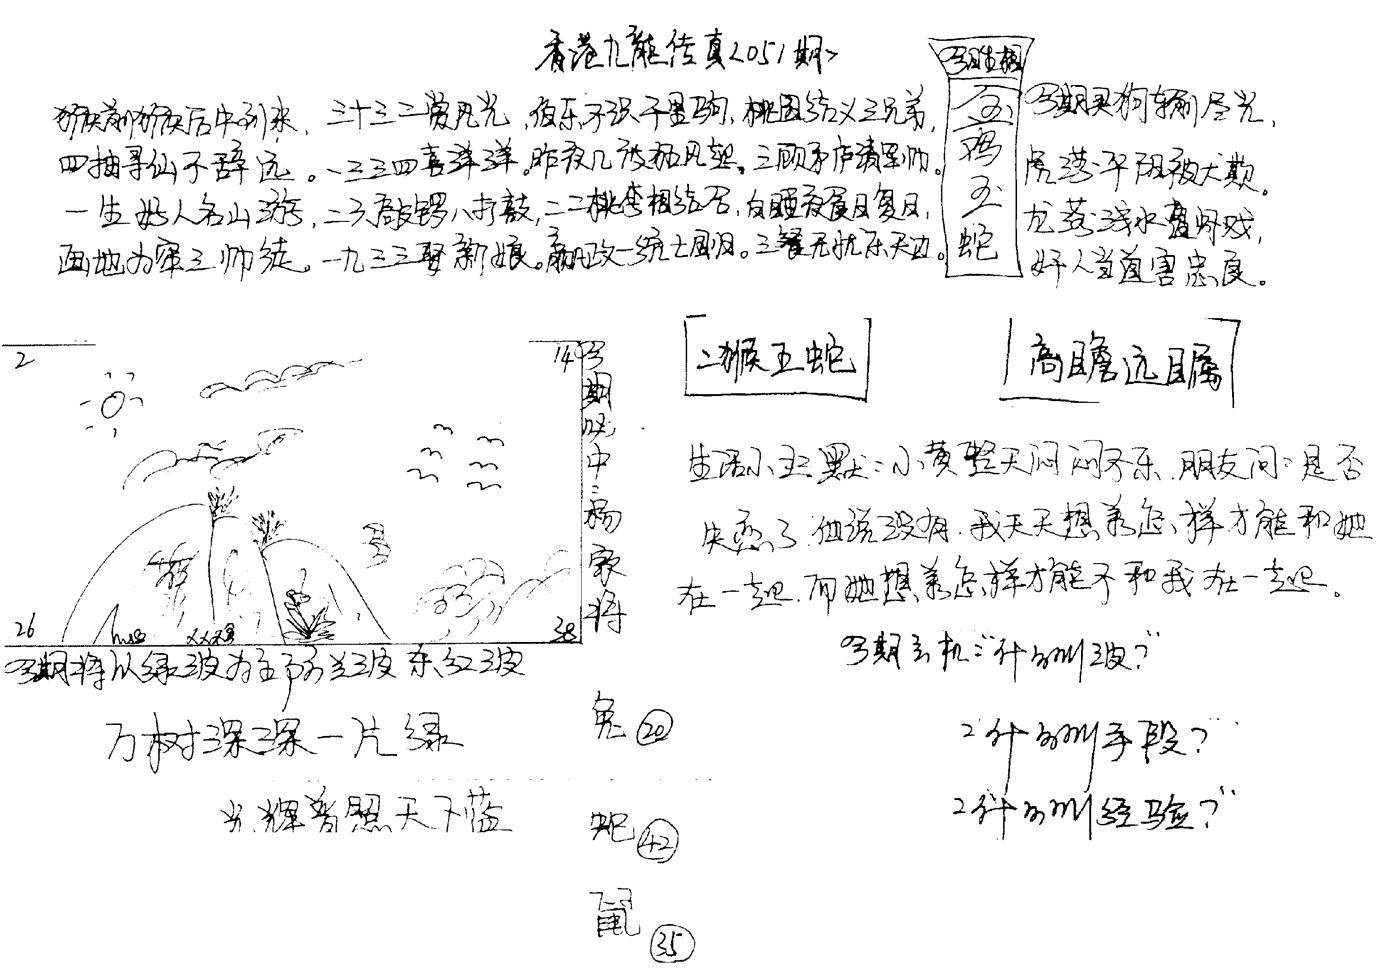 香港九龍传真<051期>
猴前猴后中到来，三十三二赏月光，伯乐不识千里驹，桃园结义三兄弟，
四抽寻仙不辞远。一三三四喜洋洋。昨夜几被狂风起。三顾矛庐请军帅。
一生好人名山游，二六敲锣八打鼓，二二桃李相结否，白睡夜食日复日，
画地为牢三帅徒。一九三三娶新娘。嬴政一统七国归。三餐无忧乐天边。
另期生相
五
鸡
五
蛇
另期买狗输尽光，
虎落平阳被犬欺。
龙落浅水遭虾戏，
奸人当道害忠良。
2
14
26
38
另期必中：杨家将
二猴五蛇
高瞻远瞩
生活小幽默：小黄整天闷闷不乐，朋友问：是否
失恋了，他说没有，我天天想着怎样才能和她
在一起，而她想着怎样才能不和我在一起。
另期玄机："什么叫波？"
"什么叫手段？"
"什么叫经验？"
另期将以绿波为主防兰波杀红波
万树深深一片绿
光辉普照天下蓝
兔 20
蛇 42
鼠 35